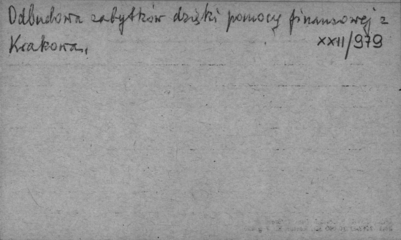 Odbudowa zabytków dzięki pomocy finansowej z
Krakowa,
XXII/979